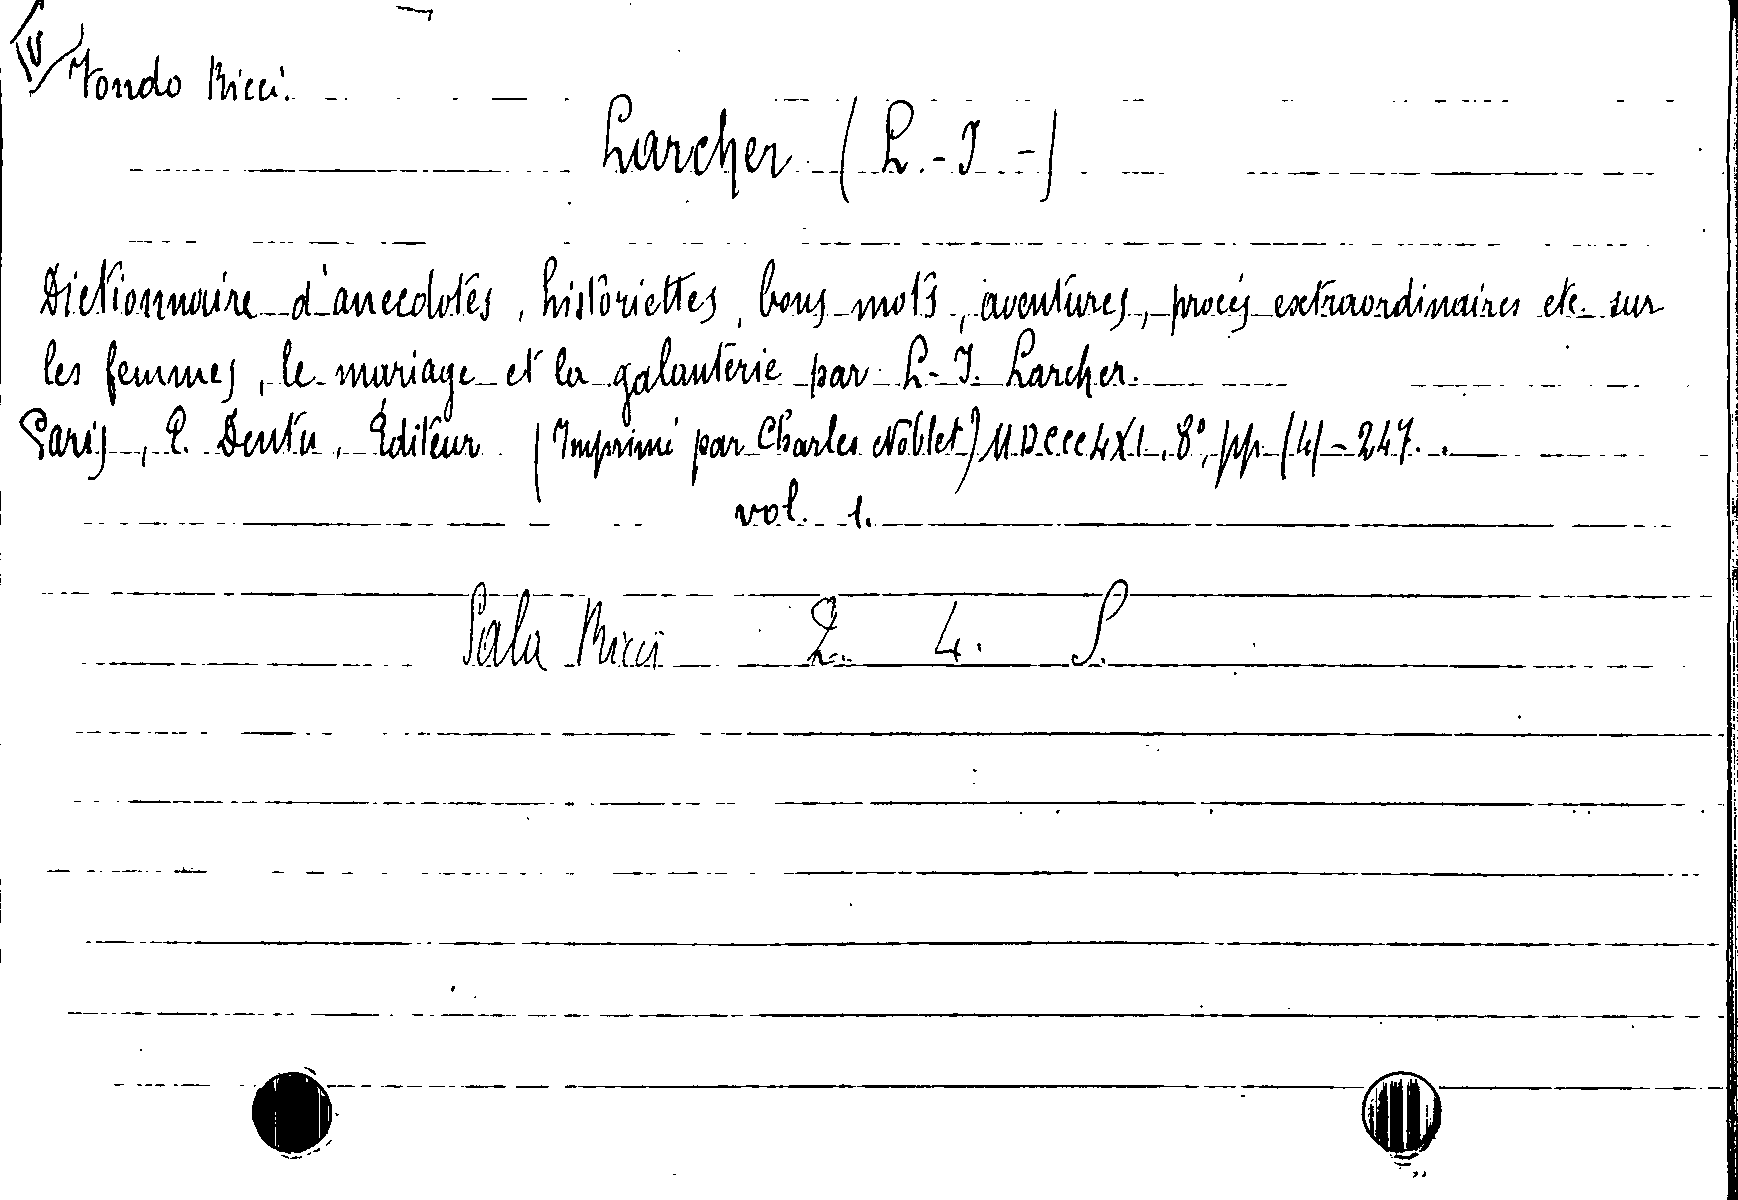 IV Fondo Ricci.
Larcher (L.-J-)
Dictionnaire d'anecdotes, historiettes, bons mots, aventures, procés extraordinaires etc. sur
les femmes, le mariage et la galanterie par L-J. Larcher.
Paris, E. Dentu, Editeur (Imprimé par Charles Noblet) MDCCCLXI, 8°, pp. (4)-247.
vol. 1.
Sala Ricci 2. 4. S.